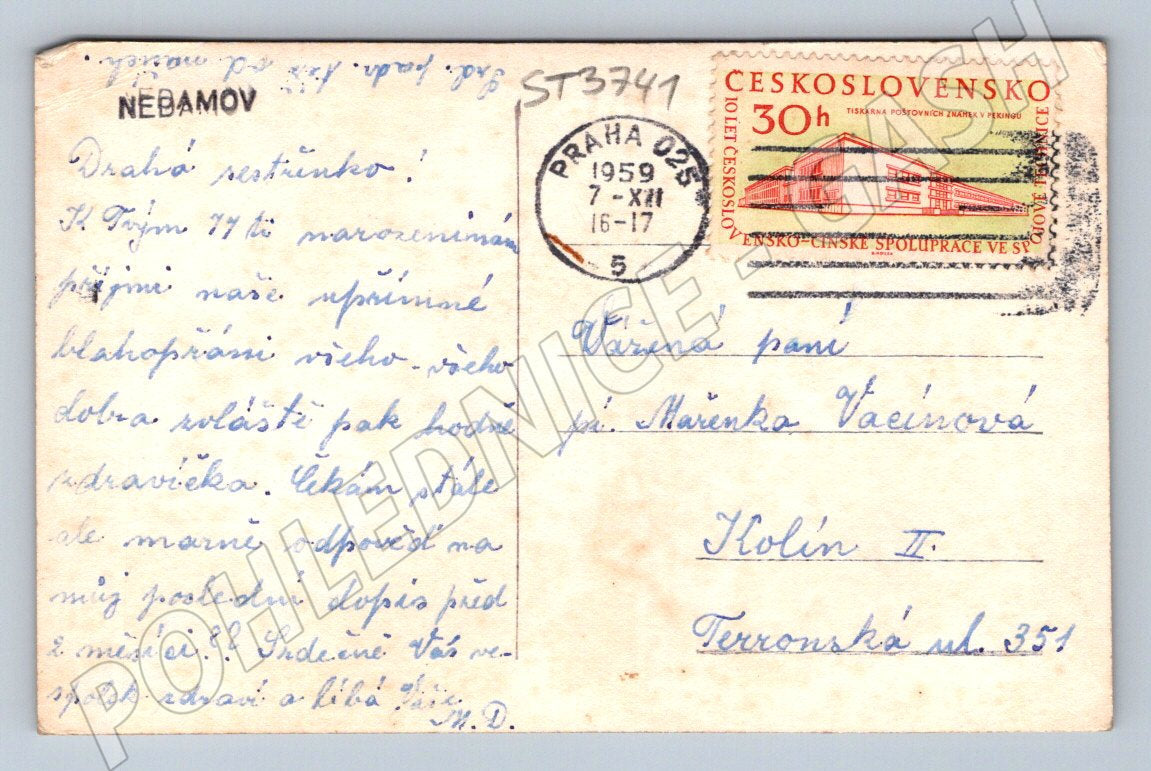 Srd. pozdr. též od
NEBAMOV
ST3741
Drahá sestřenko!
K Tvým 77ti narozeninám
přijmi naše upřímné
blahopřání všeho - všeho
dobra zvláště pak hodně
zdravíčka. Čekám stále
ale marně odpověď na
můj poslední dopis před
2 měsíci!! Srdečně Vás ve-
spolek zdraví a líbá Vaše
M. D.
PRAHA 025
1959
7 -XII
16-17
5
ČESKOSLOVENSKO
30h
TISKÁRNA POŠTOVNÍCH ZNÁMEK V PEKINGU
10 LET ČESKOSLOVENSKO-ČÍNSKÉ SPOLUPRÁCE VE SPOJOVÉ TECHNICE
Vážená paní
pí. Mařenka Vacínová
Kolín II.
Terronská ul. 351
POHLEDNICE - GASH